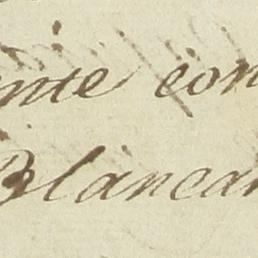 ente con
Blancar